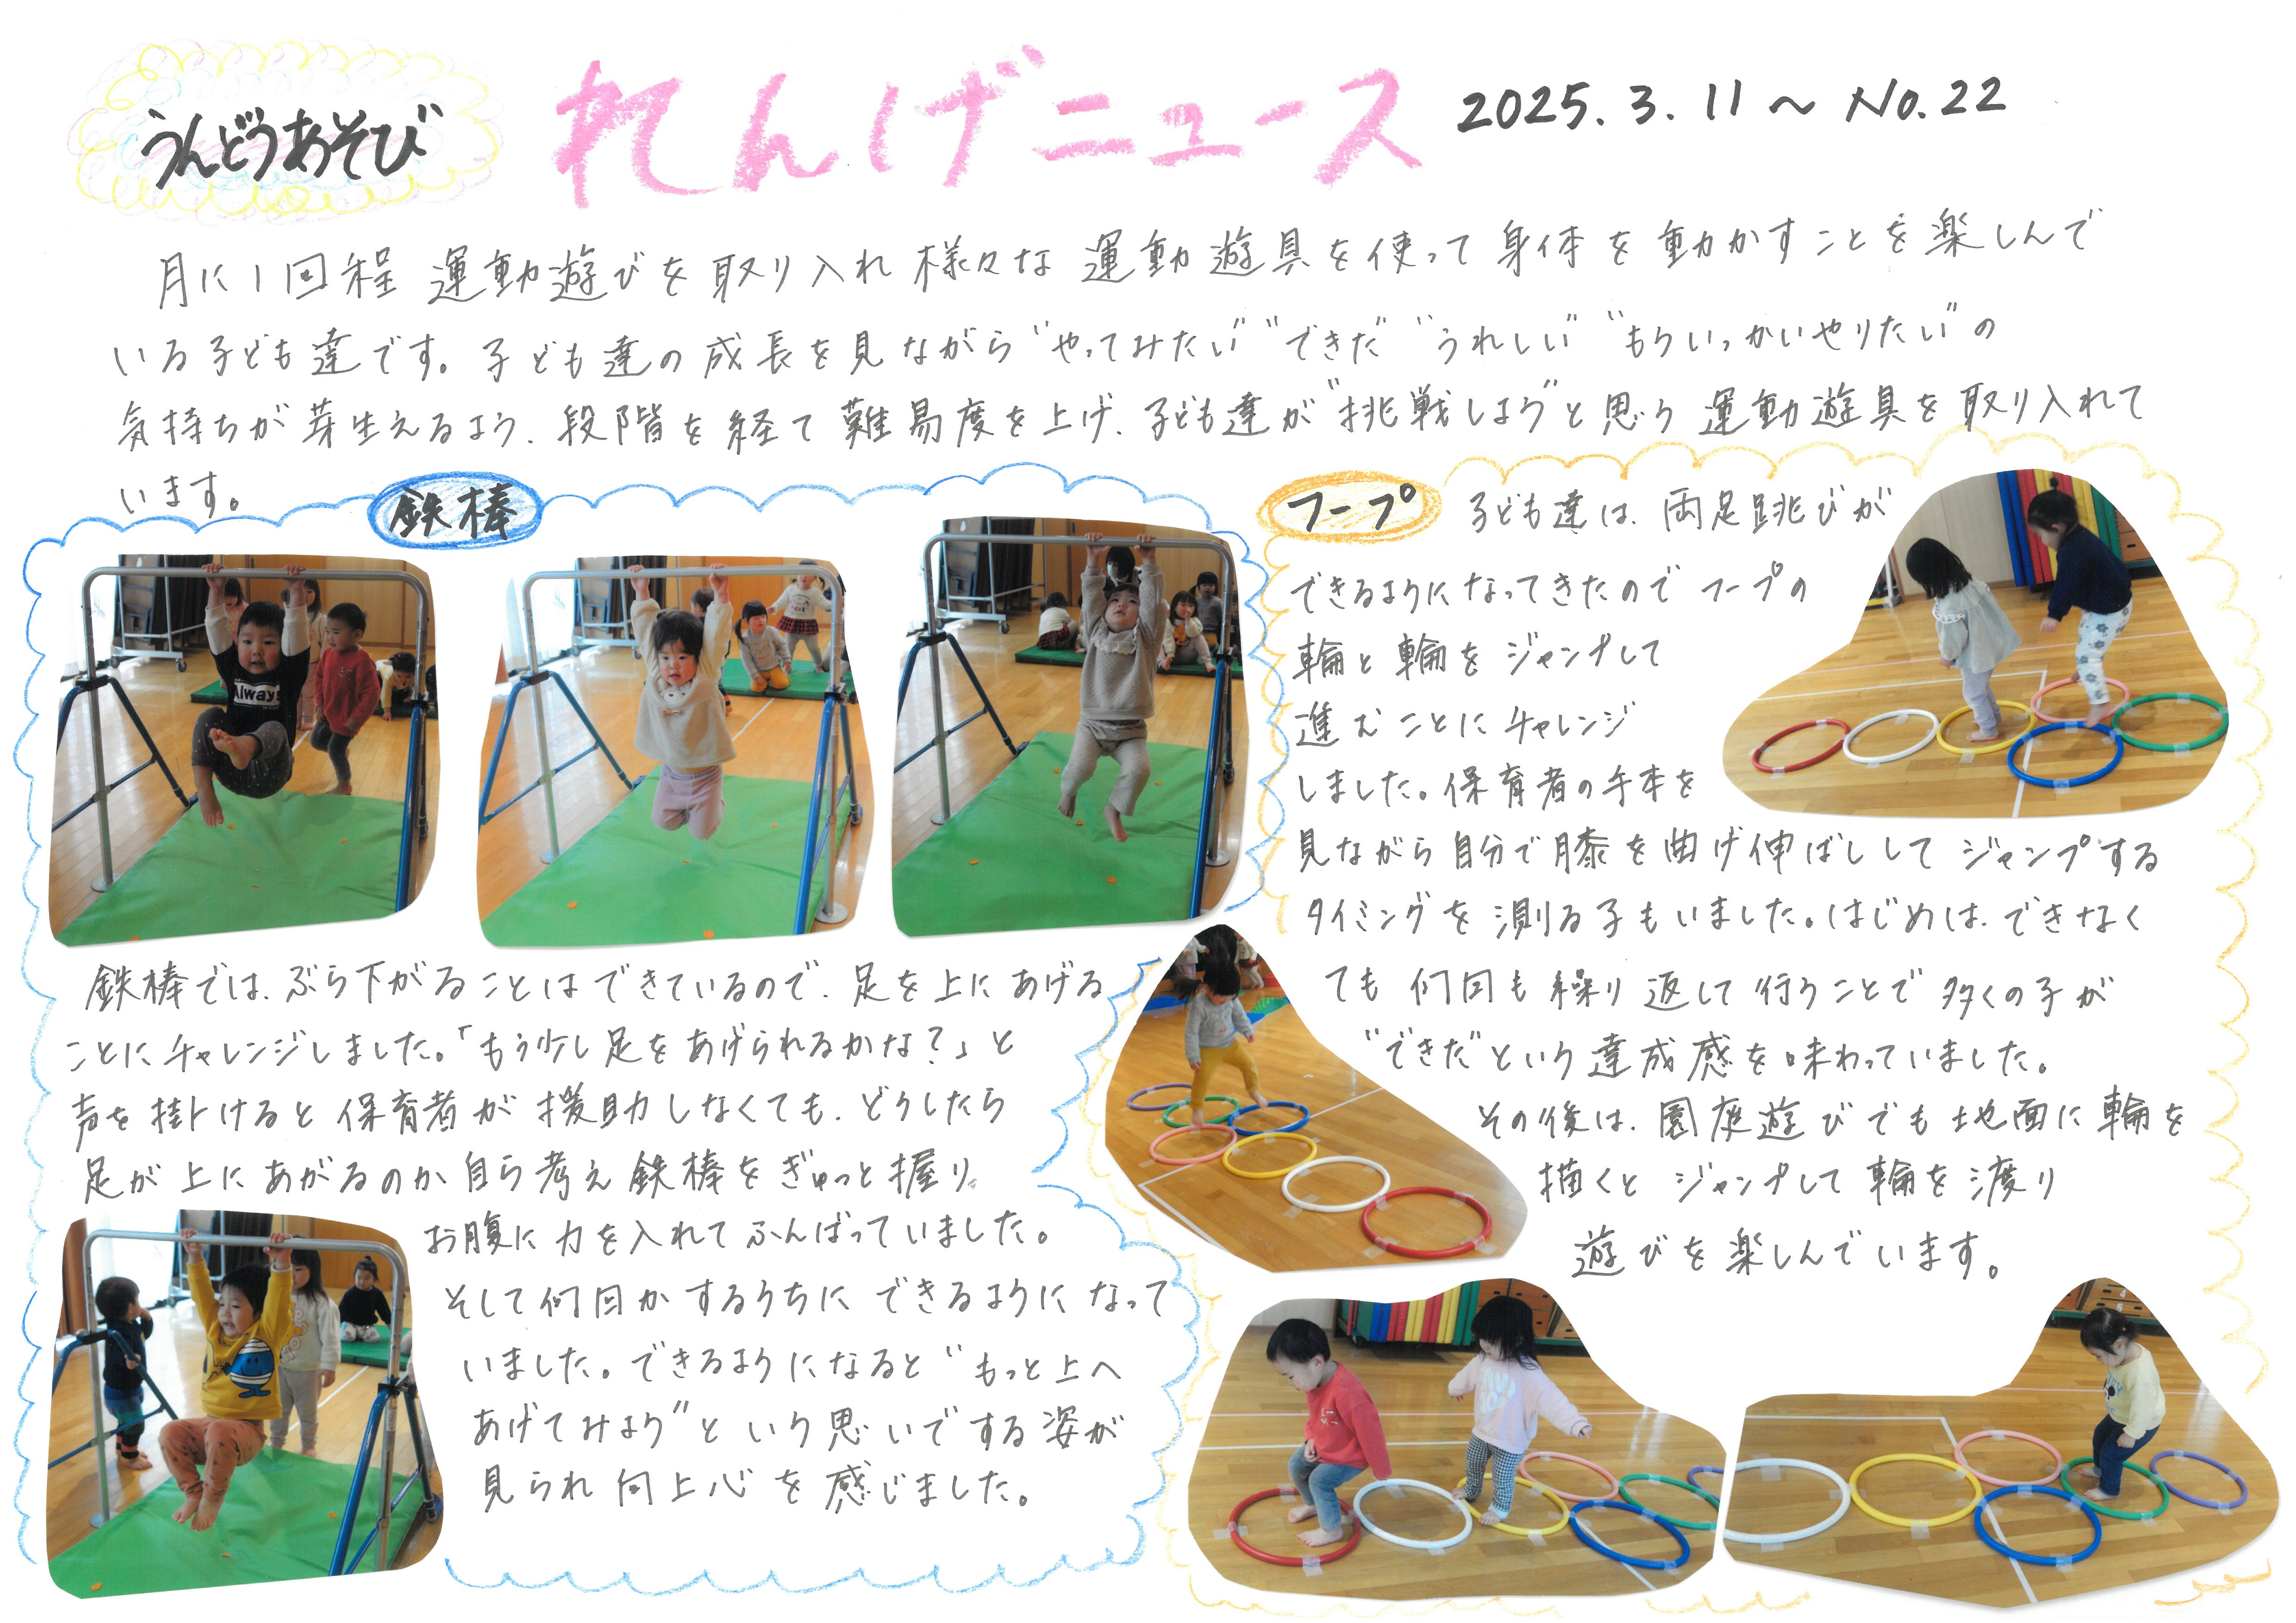 うんどうあそび
れんげニュース
2025.3.11〜 No.22
月に1回程 運動遊びを取り入れ 様々な 運動遊具を使って 身体を動かすことを楽しんで
いる子ども達です。子ども達の成長を見ながら“やってみたい”“できた”“うれしい”“もういっかいやりたい”の
気持ちが芽生えるよう、段階を経て難易度を上げ、子ども達が“挑戦しよう”と思う 運動遊具を取り入れて
います。
鉄棒
鉄棒では、ぶら下がることはできているので、足を上にあげる
ことにチャレンジしました。「もう少し足をあげられるかな?」と
声を掛けると保育者が援助しなくても、どうしたら
足が上にあがるのか自ら考え鉄棒をぎゅっと握り、
お腹に力を入れてふんばっていました。
そして何回かするうちにできるようになって
いました。できるようになると“もっと上へ
あげてみよう”という思いでする姿が
見られ向上心を感じました。
フープ
子ども達は、両足跳びが
できるようになってきたのでフープの
輪と輪をジャンプして
進むことにチャレンジ
しました。保育者の手本を
見ながら自分で膝を曲げ伸ばししてジャンプする
タイミングを測る子もいました。はじめは、できなく
ても何回も繰り返して行うことで多くの子が
“できた”という達成感を味わっていました。
その後は、園庭遊びでも地面に輪を
描くとジャンプして輪を渡り
遊びを楽しんでいます。
Always